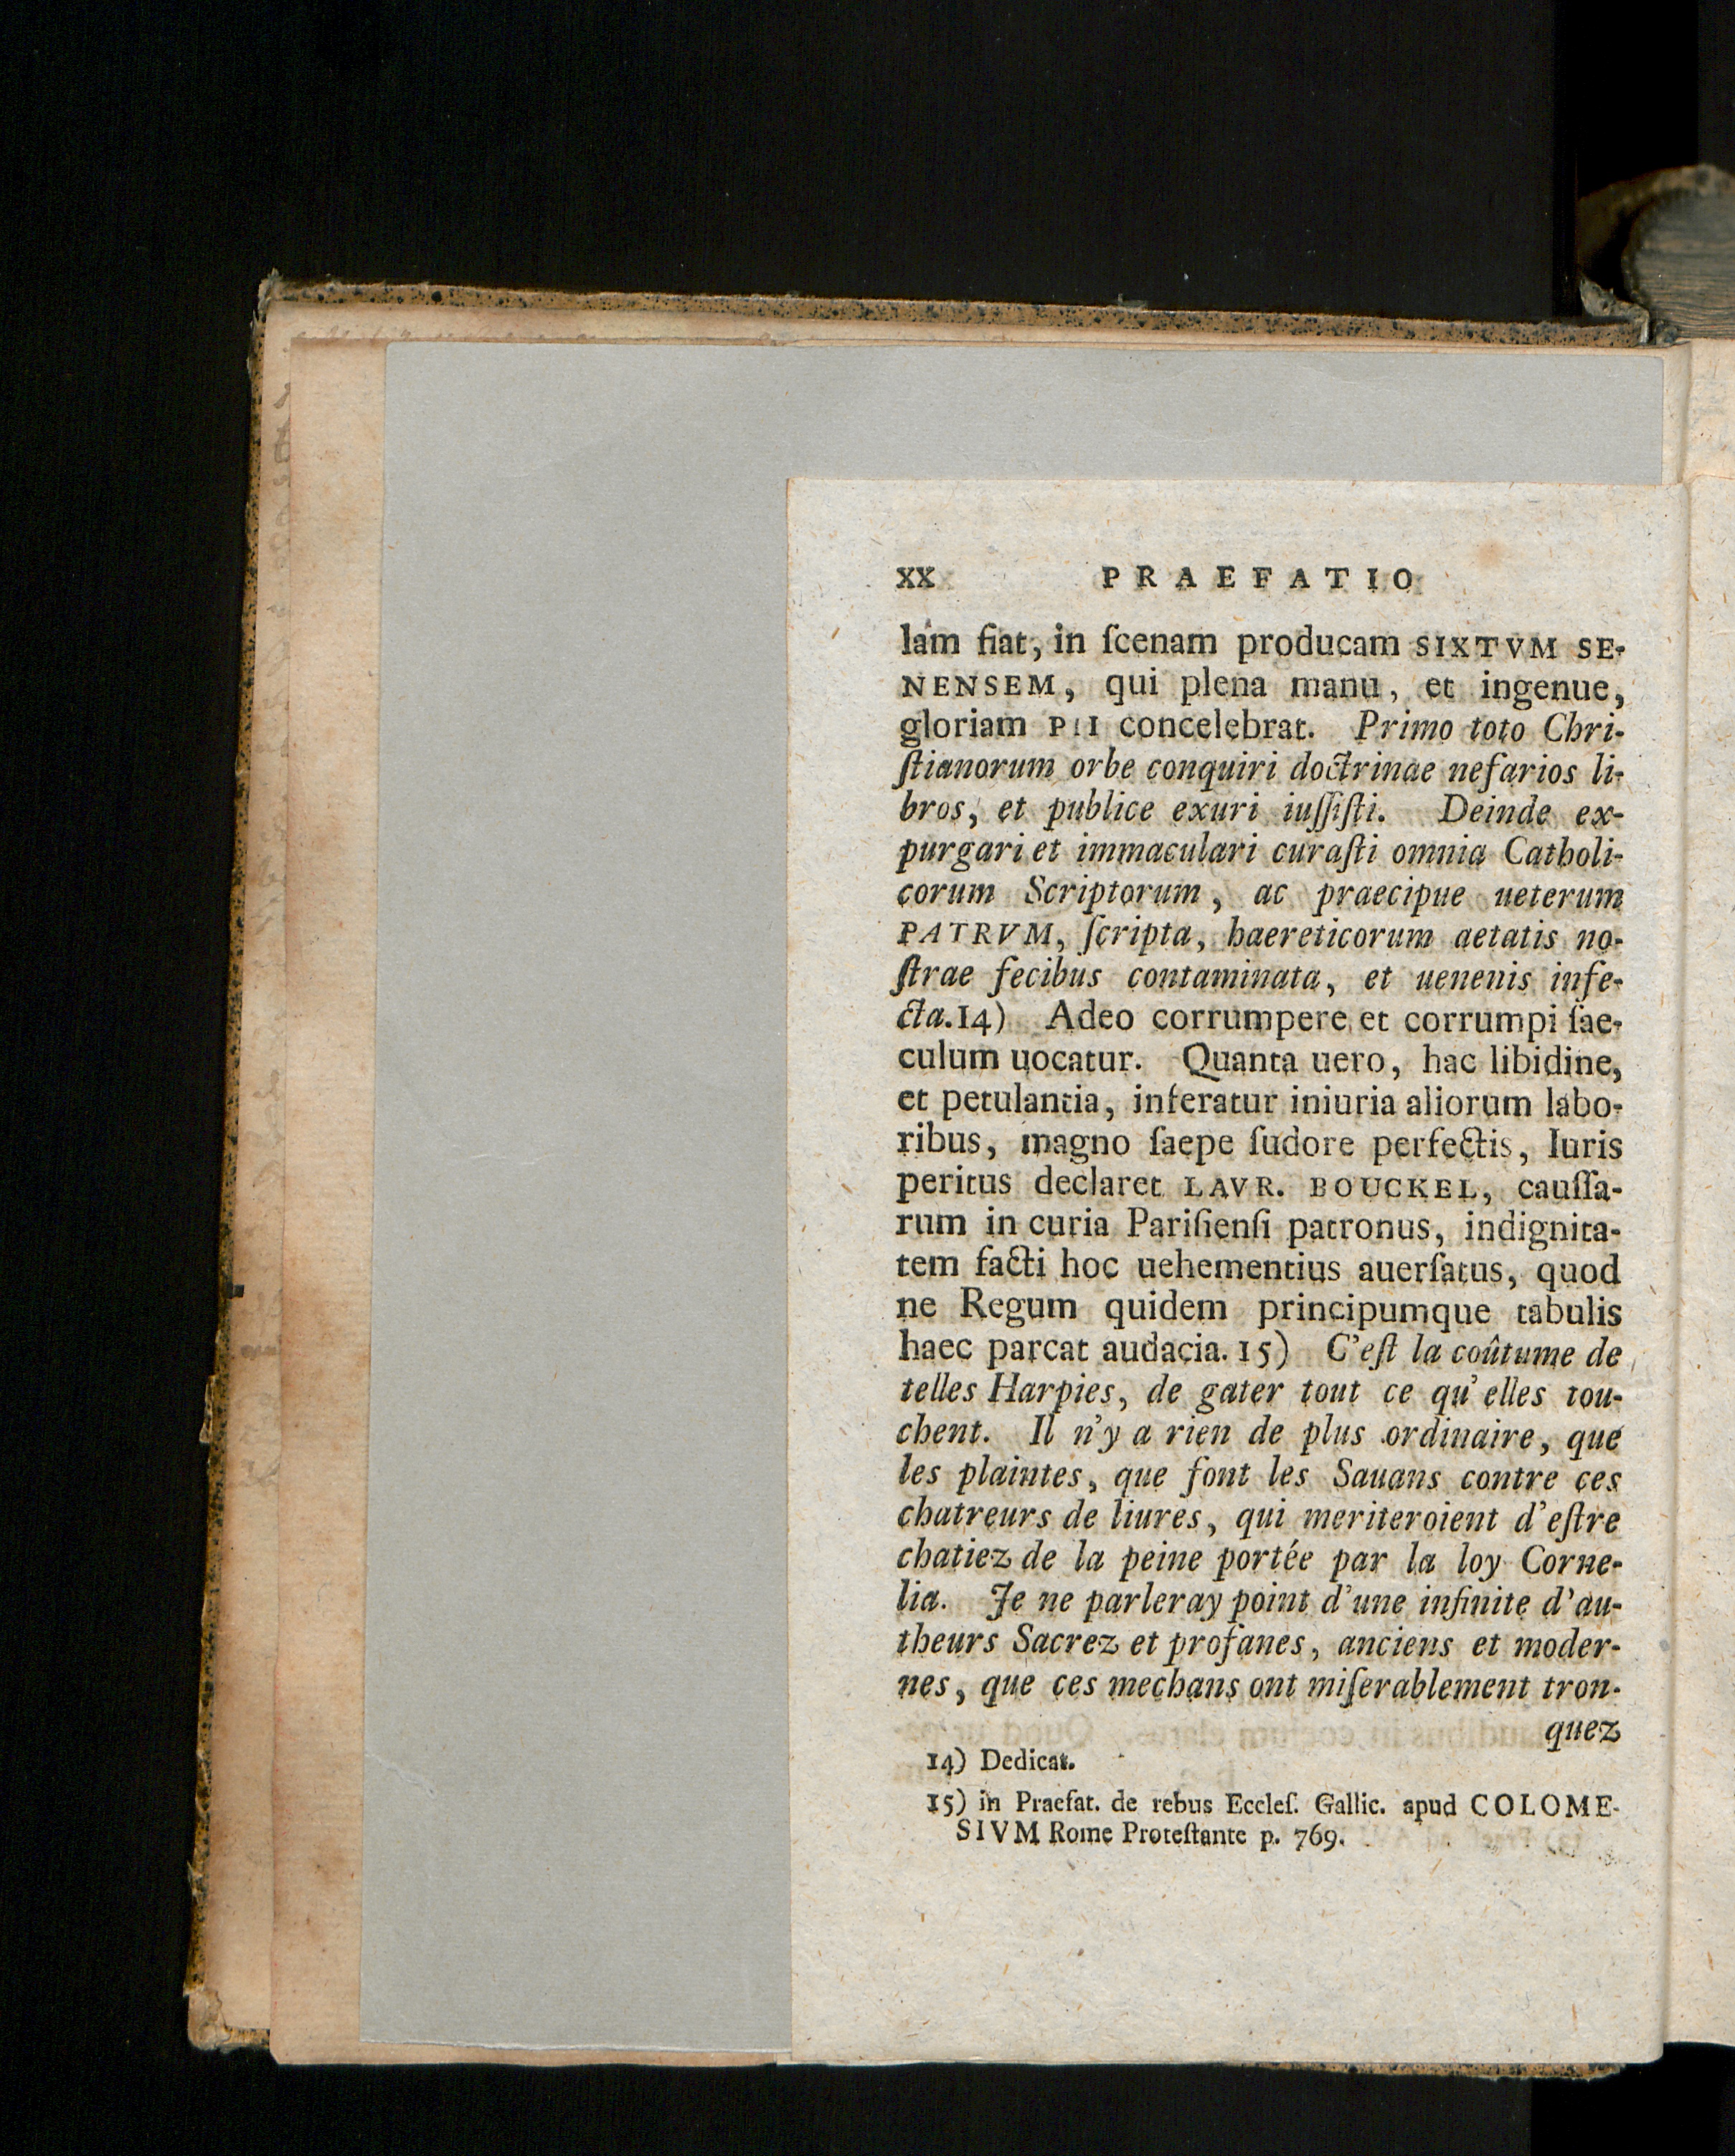 XX PRAEFATIO
lam fiat, in ſcenam producam SIXTVM SE-
NENSEM, qui plena manu, et ingenue,
gloriam PII concelebrat. Primo toto Chri-
ſtianorum orbe conquiri doctrinae nefarios li-
bros, et publice exuri iuſſiſti. Deinde ex-
purgari et immaculari curaſti omnia Catholi-
corum Scriptorum, ac praecipue ueterum
PATRVM, ſcripta, haereticorum aetatis no-
ſtrae fecibus contaminata, et uenenis infe-
cta.14) Adeo corrumpere et corrumpi ſae-
culum uocatur. Quanta uero, hac libidine,
et petulantia, inferatur iniuria aliorum labo-
ribus, magno ſaepe ſudore perfectis, Iuris
peritus declaret LAVR. BOUCKEL, cauſſa-
rum in curia Pariſienſi patronus, indignita-
tem facti hoc uehementius auerſatus, quod
ne Regum quidem principumque tabulis
haec parcat audacia. 15) C'eſt la coûtume de
telles Harpies, de gater tout ce qu'elles tou-
chent. Il n'y a rien de plus ordinaire, que
les plaintes, que font les Sauans contre ces
chatreurs de liures, qui meriteroient d'eſtre
chatiez de la peine portée par la loy Corne-
lia. Je ne parleray point d'une infinite d'au-
theurs Sacrez et profanes, anciens et moder-
nes, que ces mechans ont miſerablement tron-
quez
14) Dedicat.
15) in Praefat. de rebus Eccleſ. Gallic. apud COLOME-
SIVM Rome Proteſtante p. 769.